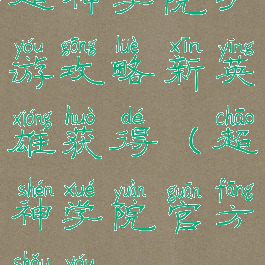 超神学院手
yóu gōng lüè xīn yīng
游攻略新英
xióng huò dé chāo
雄获得（超
shén xué yuàn guān fāng
神学院官方
shǒu yóu